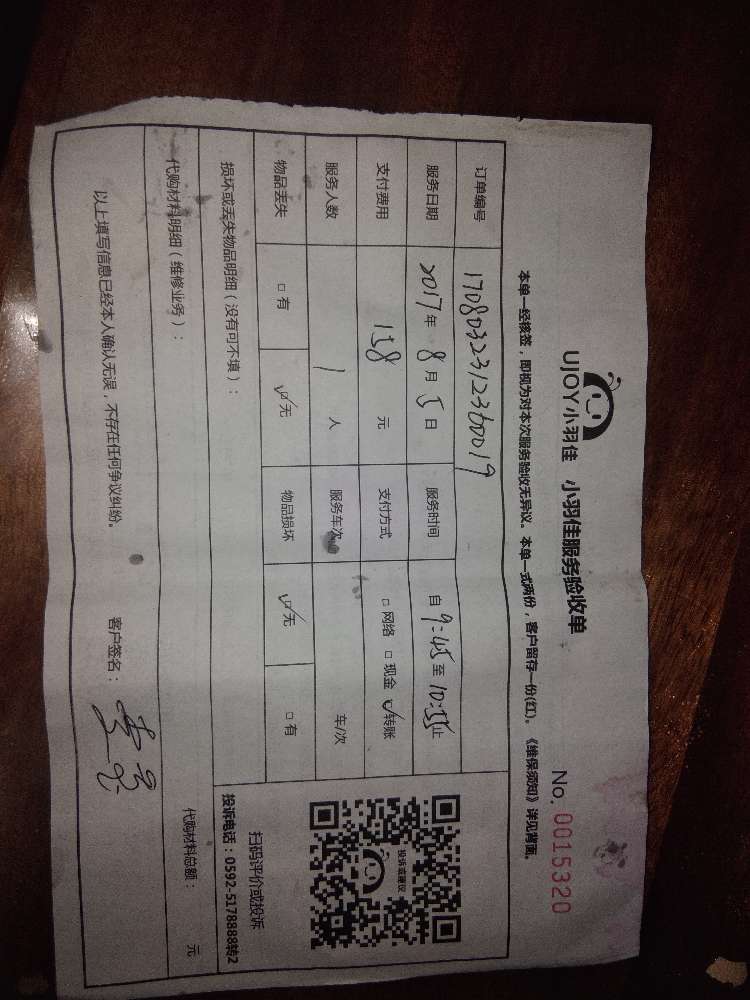 UJOY小羽佳 小羽佳服务验收单
No. 0015320
本单一经核签，即视为对本次服务验收无异议。本单一式两份，客户留存一份(红)。《维保须知》详见背面。
订单编号 1708032312360019
服务日期 2017年 8月 5日 服务时间 自 9:45 至 10:55 止
支付费用 158 元 支付方式 □网络 □现金 ☑转账
服务人数 1 人 服务车次 车/次
物品丢失 □有 ☑无 物品损坏 ☑无 □有
投诉或建议
扫码评价或投诉
投诉电话：0592-5178888转2
损坏或丢失物品明细（没有可不填）：
代购材料明细（维修业务）： 代购材料总额： 元
以上填写信息已经本人确认无误，不存在任何争议纠纷。 客户签名：